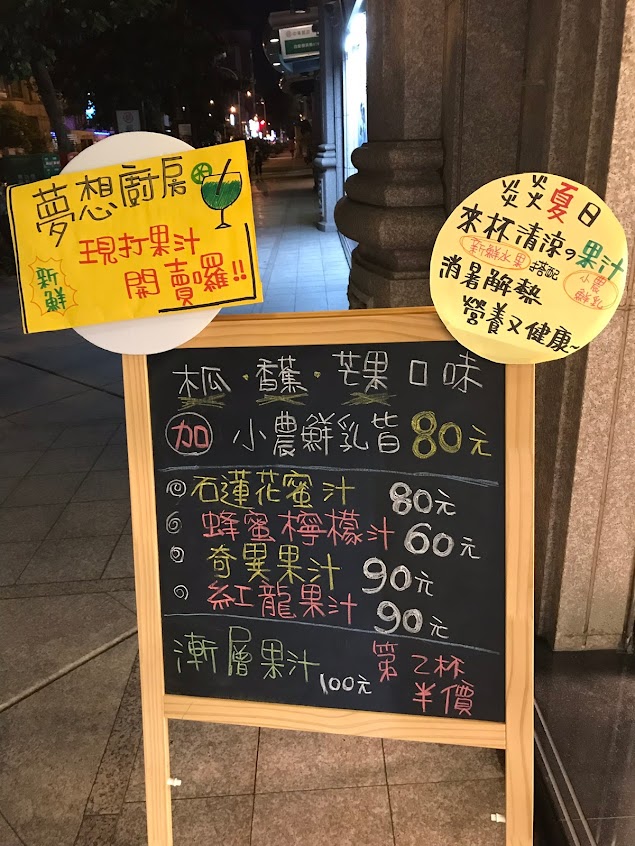 夢想廚房
現打果汁
開賣囉!!
新鮮
炎炎夏日
來杯清涼の果汁
新鮮水果 搭配 小農鮮乳
消暑解熱
營養又健康~
木瓜·香蕉·芒果口味
加 小農鮮乳皆80元
石蓮花蜜汁 80元
蜂蜜檸檬汁 60元
奇異果汁 90元
紅龍果汁 90元
漸層果汁 100元
第2杯
半價